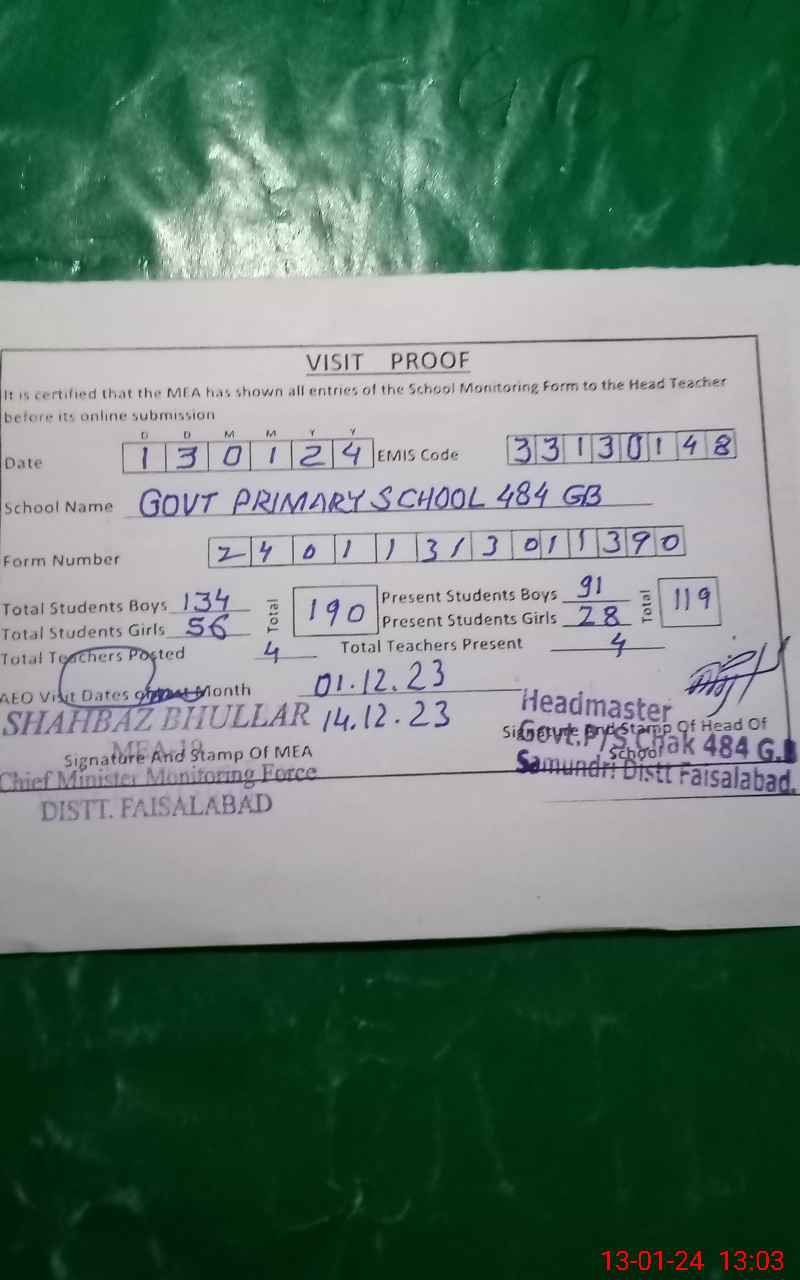 VISIT PROOF
It is certified that the MEA has shown all entries of the School Monitoring Form to the Head Teacher
before its online submission
D D M M Y Y
Date 1 3 0 1 2 4 EMIS Code 3 3 1 3 0 1 4 8
School Name GOVT PRIMARY SCHOOL 484 GB
Form Number 2 4 0 1 1 3 1 3 0 1 1 3 9 0
Total Students Boys 134 Total 190 Present Students Boys 91 Total 119
Total Students Girls 56 Present Students Girls 28
Total Teachers Posted 4 Total Teachers Present 4
AEO Visit Dates of Month 01.12.23
SHAHBAZ BHULLAR 14.12.23 Headmaster
Signature And Stamp Of Head Of
MEA Govt. P/S Chak 484 G.B
Signature And Stamp Of MEA School
Chief Minister Monitoring Force Samundri Distt Faisalabad.
DISTT. FAISALABAD
13-01-24 13:03